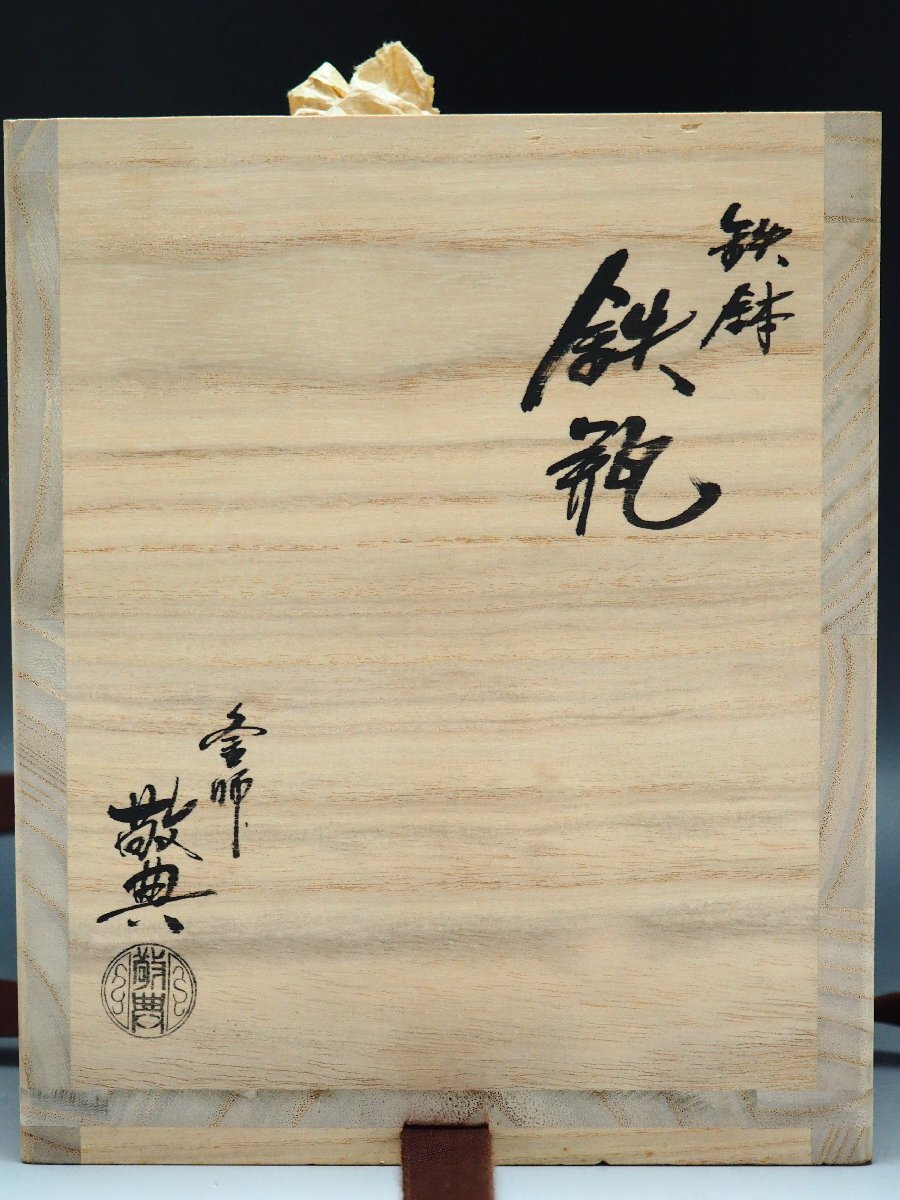 鉄鉢
鉄瓶
釜師
敬典
敬典